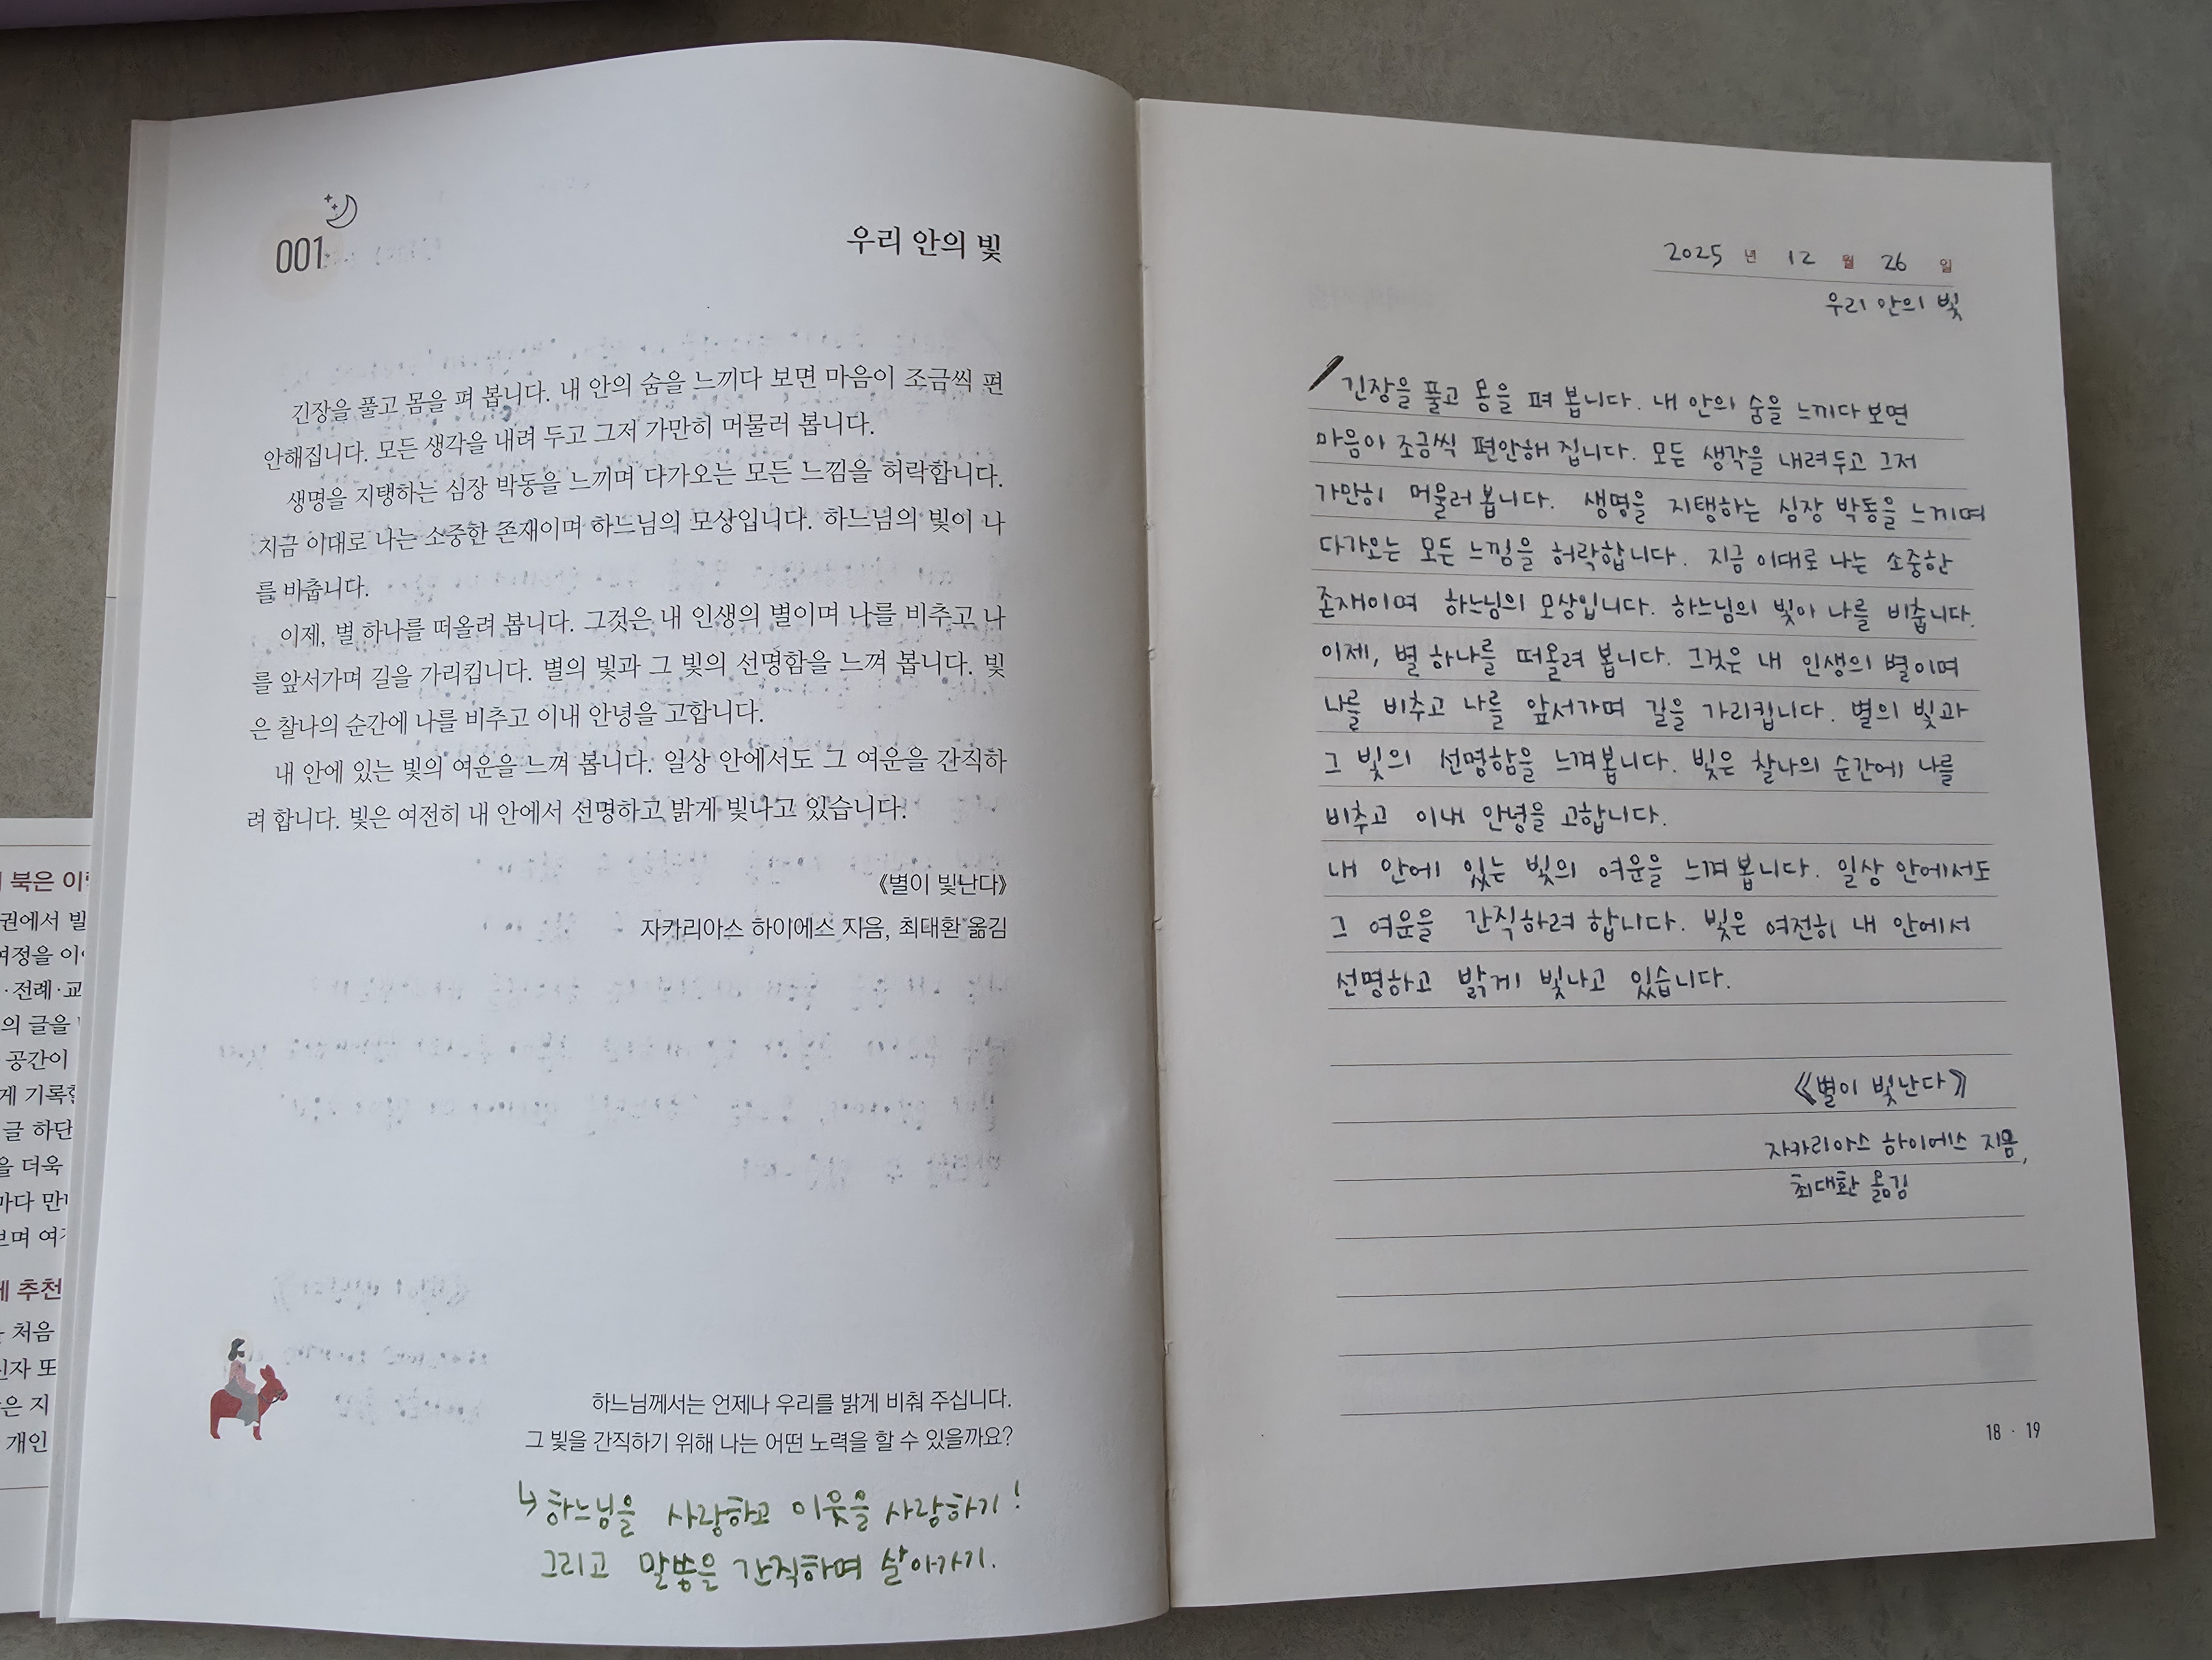 001
우리 안의 빛
긴장을 풀고 몸을 펴 봅니다. 내 안의 숨을 느끼다 보면 마음이 조금씩 편
안해집니다. 모든 생각을 내려 두고 그저 가만히 머물러 봅니다.
생명을 지탱하는 심장 박동을 느끼며 다가오는 모든 느낌을 허락합니다.
지금 이대로 나는 소중한 존재이며 하느님의 모상입니다. 하느님의 빛이 나
를 비춥니다.
이제, 별 하나를 떠올려 봅니다. 그것은 내 인생의 별이며 나를 비추고 나
를 앞서가며 길을 가리킵니다. 별의 빛과 그 빛의 선명함을 느껴 봅니다. 빛
은 찰나의 순간에 나를 비추고 이내 안녕을 고합니다.
내 안에 있는 빛의 여운을 느껴 봅니다. 일상 안에서도 그 여운을 간직하
려 합니다. 빛은 여전히 내 안에서 선명하고 밝게 빛나고 있습니다.
《별이 빛난다》
자카리아스 하이에스 지음, 최대환 옮김
하느님께서는 언제나 우리를 밝게 비춰 주십니다.
그 빛을 간직하기 위해 나는 어떤 노력을 할 수 있을까요?
↳ 하느님을 사랑하고 이웃을 사랑하기!
그리고 말씀을 간직하며 살아가기.
북은 이
권에서 빌
여정을 이
·전례·교
의 글을
공간이
게 기록
글 하단
을 더욱
마다 만
보며 여
추천
처음
신자 또
은 지
개인
2025 년 12 월 26 일
우리 안의 빛
긴장을 풀고 몸을 펴 봅니다. 내 안의 숨을 느끼다 보면
마음이 조금씩 편안해 집니다. 모든 생각을 내려두고 그저
가만히 머물러 봅니다. 생명을 지탱하는 심장 박동을 느끼며
다가오는 모든 느낌을 허락합니다. 지금 이대로 나는 소중한
존재이며 하느님의 모상입니다. 하느님의 빛이 나를 비춥니다.
이제, 별 하나를 떠올려 봅니다. 그것은 내 인생의 별이며
나를 비추고 나를 앞서가며 길을 가리킵니다. 별의 빛과
그 빛의 선명함을 느껴봅니다. 빛은 찰나의 순간에 나를
비추고 이내 안녕을 고합니다.
내 안에 있는 빛의 여운을 느껴 봅니다. 일상 안에서도
그 여운을 간직하려 합니다. 빛은 여전히 내 안에서
선명하고 밝게 빛나고 있습니다.
《별이 빛난다》
자카리아스 하이에스 지음,
최대환 옮김
18 · 19